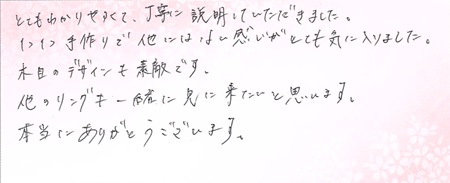 とてもわかりやすくて、丁寧に説明していただきました。
1つ1つ手作りで他にはない感じがとても気に入りました。
木目のデザインも素敵です。
他のリングも一緒に見に来たいと思います。
本当にありがとうございます。